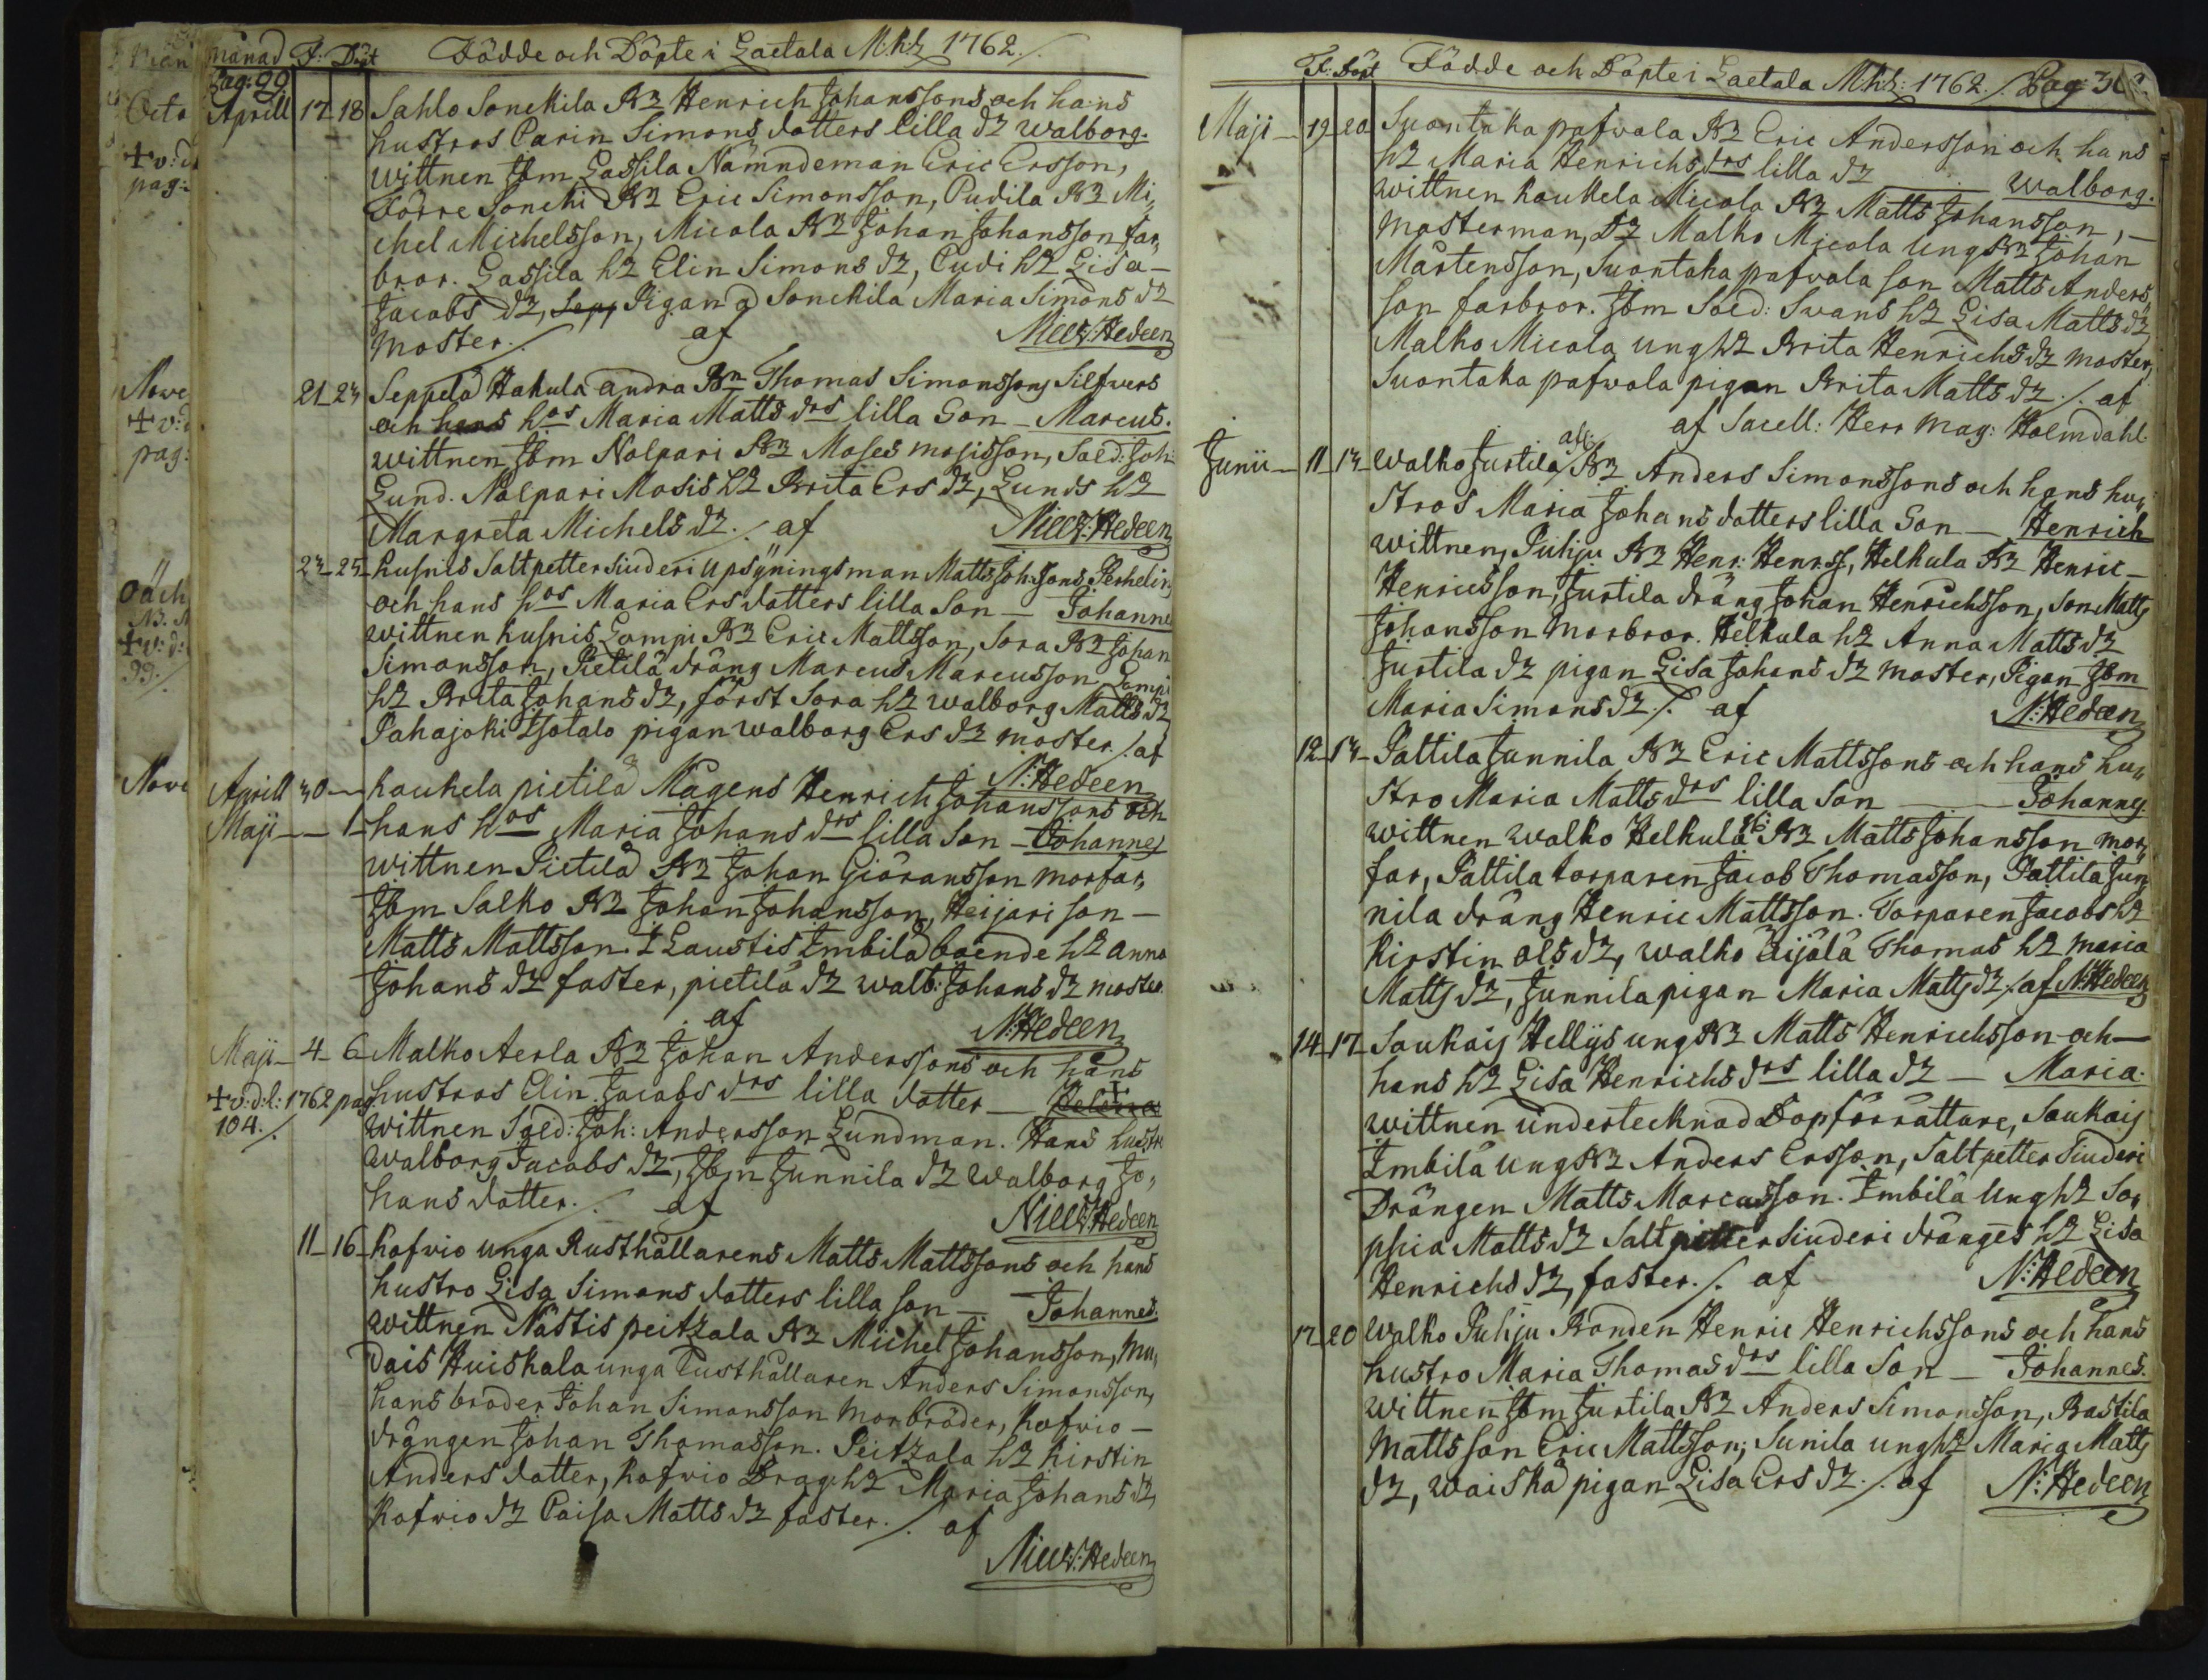 månad F: Döpt Födde och Döpte i Laetala M:k:h 1762./.
Pag: 29.
Aprill 17 18 Sahlo Sonckila Bz Henrich Johanssons och hans
hustros Carin Simons dotters lilla dz Walborg.
wittnen Ibm Lassila Nämndeman Eric Ersson,
Förre Soncki Bz Eric Simonsson, Pudila Bz Mi,,
chel Michelsson, Micola Bz Johan Johansson far,,
bror. Lassila hz Elin Simons dz, Cudi hz Lisa –
Jacobs dz, Pigan Sonckila Maria Simons dz
Moster ./. af Niels: Hedeen
21 23 Seppelä Hakula andra Bn Thomas Simonssons Silfwers
och hos Maria Matts drs lilla Son – Marcus.
wittnen Ibm Nolpari Bz Moses mosisson, Sold: Joh:
Lund. Nolpari Mosis hz Brita Ers dz, Lunds hz
Margreta Michels dz ./. af Niels: Hedeen
23 25 Kusnis Saltpetter Siuderi Upsÿningsman Matts Joh:sons Perhelin
och hans hos Maria Ers dotters lilla Son – Johanne
wittnen Kusnis Lampi Bz Eric Mattsson, Sora Bz Johan
Simonsson, Pietilä dräng Marcus Marcusson, Lampi
hz Brita Johans dz, först Sora hz walborg Matts dz
Pahajoki Isotalo pigan walborg Ers dz moster ./. af
N: Hedeen
Aprill 30 – haukela pietilä Mågens Henrich Johanssons och
Maji – 1 hans hos Maria Johans drs lilla Son – Johannes
wittnen Pietilä Bz Johan Giöransson morfar,
Ibm Salko Bz Johan Johansson, Heijari son –
Matts Mattsson. I Laustis Imbilä boende hz anna
Johans dz faster, pietilä dz walb: Johans dz moster
./. af N: Hedeen
Maji – 4 6 Malko Aerla Bz Johan Anderssons och hans
+ v: d: l: 1762 pag hustros Elin Jacobs drs lilla dotter – Helena
104./. wittnen Sold: Joh: Andersson Lundman. Hans hustr
Walborg Jacobs dz, Ibm Junnila dz Walborg Jo,,
hans dotter ./. af Niels: Hedeen
11 16 Kofvio unga Rusthållarens Matts Mattssons och hans
hustro Lisa Simons dotters lilla son – Johannes.
wittnen Nästis peitzala Bz Michel Johansson, Mu,,
dais Huiskala unga Rusthållaren Anders Simonsson,
hans broder Johan Simonsson morbröder, Kofvio –
drängen Johan Thomasson. Peitzala hz Kirstin
Anders dotter, Kofvio Drag: hz Maria Johans dz,
Kofvio dz Caisa Matts dz faster ./. af
Niels: Hedeen
F: Döpt Födde och Döpte i Laetala M:k:h: 1762 ./. Pag:
Maji – 19 20 Suontaka pafwola Bz Eric Andersson och hans
hz Maria Henrichs drs lilla dz – Walborg.
wittnen haukela Micola Bz Matts Johansson, –
Mosterman, Dz Malko Micola Ung Bz Johan
Mårtensson, Suontaka pafwola son Matts Anders,,
son farbror. Ibm Sold: Svans hz Lisa Matts dz
Malko Micola ung hz Brita Henrichs dz moster,
Suontaka pafwola pigan Brita Matts dz ./. af
af Sacell: Herr Mag: Holmdahl.
Junii – 11 13 Walko Jurtila Bz Anders Simonssons och hans hu,,
stros Maria Johans dotters lilla Son – Henrich
wittnen, Puhju Bz Henr: Henrss, Helkula Bz Henric –
Henricsson, Jurtila dräng Johan Henrichsson, Son Matts
Johansson Morbror. Helkula hz Anna Matts dz
Jurtila dz pigan Lisa Johans dz moster, Pigan Ibm
Maria Simons dz ./. af N: Hedeen
12 13 Pattila Junnila Bz Eric Mattssons och hans hu,,
stro Maria Matts drs lilla Son – Johannes.
wittnen walko Helkula Bz Matts Johansson mor,,
far, Pattila torparen Jacob Thomasson, Pattila Jun
nila dräng Henric Mattsson. Torparen Jacobs hz
Kirstin Ols dz, walko äijälä Thomas hz maria
Matts dz, Junnila pigan Maria Matts dz ./. af N: Hedeen
14 17 Soukais Hellÿs ung Bz Matts Henrichsson och –
hans hz Lisa Henrichs drs lilla dz – Maria.
wittnen undertecknad Dopförrättare, Soukais
Imbilä Ung Bz Anders Ersson, Saltpetter Siuderi
Drängen Matts Marcusson. Imbilä Ung hz So,,
phia Matts dz Saltpetter Siuderi dränges hz Lisa
Henrichs dz, faster ./. af N: Hedeen
17 20 Walko Puhju Bonden Henric Henrichssons och hans
hustro Maria Thomas drs lilla Son – Johannes.
wittnen Ibm Jurtila Bz Anders Simonsson, Rastila
Matts son Eric Mattsson; Sunila ung hz Maria Matts
dz, waiska pigan Lisa Ers dz ./. af N: Hedeen